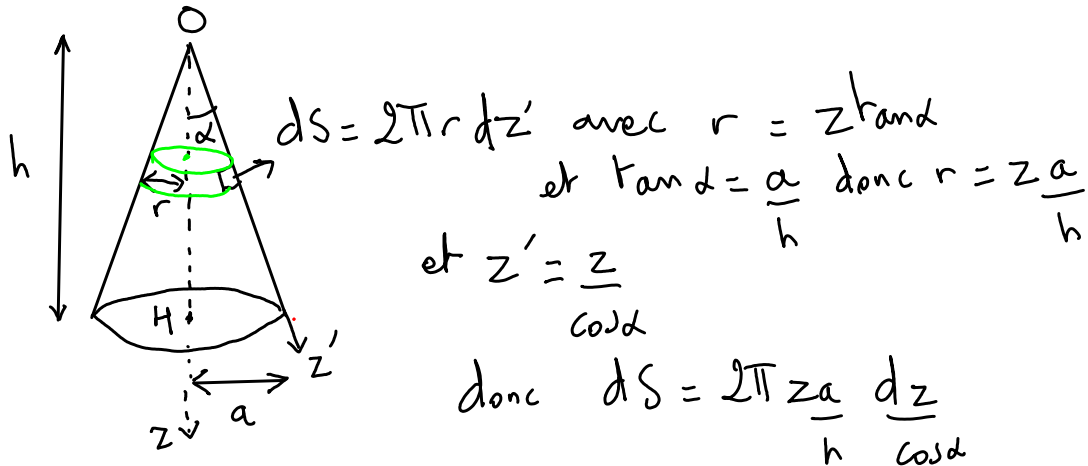 O
h
α
dS = 2πr dz' avec r = z tanα
et tanα = a/h donc r = z a/h
r
et z' = z/cosα
H
z'
a
z
donc dS = 2π z a/h dz/cosα